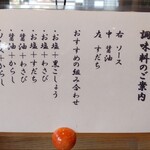 調味料のご案内
右 ソース
中 醤油
左 すだち
おすすめの組み合わせ
・お塩＋黒こしょう
・お塩＋わさび
・お塩＋すだち
・醤油＋わさび
・醤油＋からし